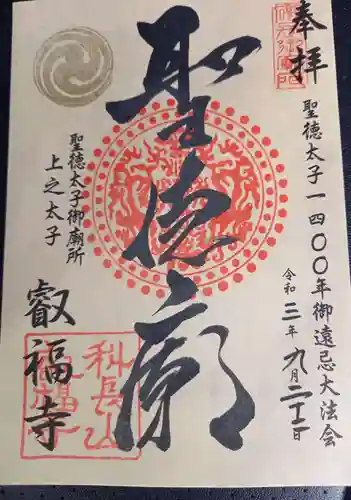 奉拝
聖徳太子一四〇〇年御遠忌大法会
令和三年九月二十二日
聖徳廟
聖徳太子御廟所
上之太子
叡福寺
科長山